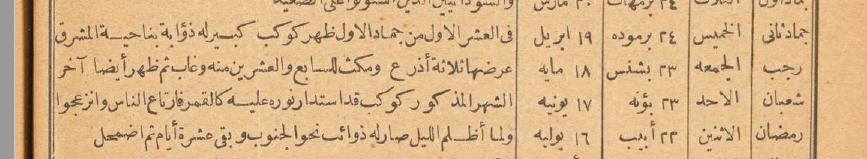 جمادثانى الخميس ٢٤ برموده ١٩ ابريل فى العشر الاول من جمادالاول ظهركوكب كبيرله ذؤابة بناحية المشرق
رجب الجمعه ٢٣ بشنس ١٨ مايه عرضها ثلاثة أذرع ومكث للسابع والعشرين منه وغاب ثم ظهر أيضا آخر
شعبان الاحد ٢٣ بؤنه ١٧ يونيه الشهر المذكور كوكب قد استدار نوره عليه كالقمر فارتاع الناس وانزعجوا
رمضان الاثنين ٢٢ أبيب ١٦ يوليه ولما أظلم الليل صارله ذوائب نحو الجنوب و بقى عشرة أيام ثم اضمحل